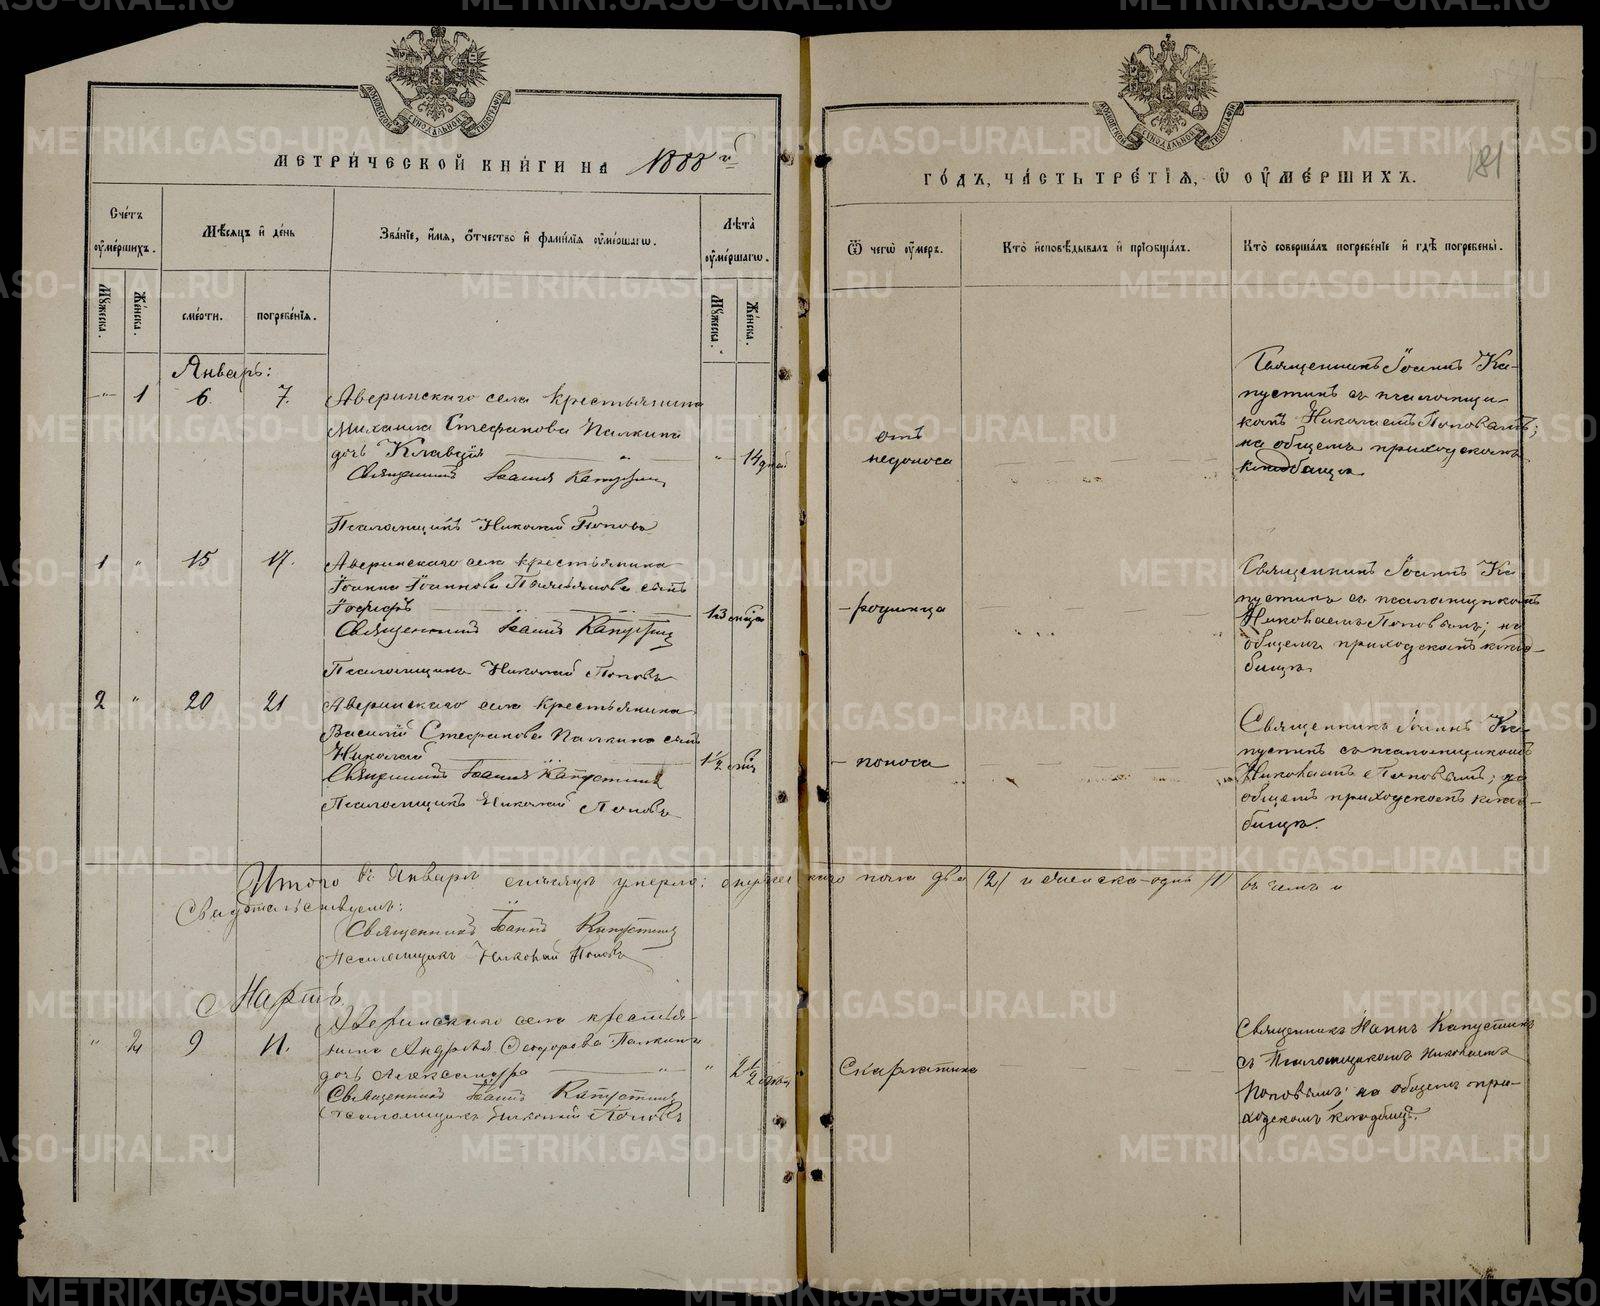 МЕТРИ́ЧЕСКОЙ КНИ́ГИ НА 1888 й
Счетъ оумершихъ.
Мѣсяцъ и день
Званіе, имя, отчество и фамилія оумершагѡ.
Лѣта оумершагѡ.
Мужеска.
Женска.
смерти.
погребенія.
Мужеска.
Женска.
Январь:
1 6. 7. Аверинскаго села крестьянина
Михаила Стефанова Палкина
дочь Клавдія 14 дней
Священникъ Іоаннъ Капустинъ
Псаломщикъ Николай Поповъ
1 " 15 17. Аверинскаго села крестьянина
Іоанна Іоаннова сынъ
Іосифъ
Священникъ Іоаннъ Капустинъ
Псаломщикъ Николай Поповъ
2 " 20 21 Аверинскаго села крестьянина
Василія Стефанова Палкина сынъ
Николай 1½
Священникъ Іоаннъ Капустинъ
Псаломщикъ Николай Поповъ
Итого въ Январѣ мѣсяцѣ умерло: мужескаго пола два /2/ и женска одна /1/ въ чемъ и
Свидѣтельствуемъ:
Священникъ Іоаннъ Капустинъ
Псаломщикъ Николай Поповъ
Мартъ.
" 2 9 11. Аверинскаго села крестья-
нина Андрея Ѳеодорова Палкина
дочь Александра " 2½
Священникъ Іоаннъ Капустинъ
Псаломщикъ Николай Поповъ
ГО́ДЪ, ЧА́СТЬ ТРЕ́ТІЯ, Ѡ ОУМЕ́РШИХЪ.
181
Ѿ чегѡ оумеръ.
Кто исповѣдывалъ и пріобщалъ.
Кто совершалъ погребеніе и гдѣ погребены.
отъ
недоноса
Священникъ Іоаннъ Ка-
пустинъ съ псаломщи-
комъ Николаемъ Поповымъ;
на общемъ приходскомъ
кладбищѣ
родимца
Священникъ Іоаннъ Ка-
пустинъ съ псаломщикомъ
Николаемъ Поповымъ; на
общемъ приходскомъ клад-
бищѣ.
поноса
Священникъ Іоаннъ Ка-
пустинъ съ псаломщикомъ
Николаемъ Поповымъ; на
общемъ приходскомъ клад-
бищѣ.
Скарлатина
Священникъ Іоаннъ Капустинъ
съ Псаломщикомъ Николаемъ
Поповымъ; на общемъ при-
ходскомъ кладбищѣ.
METRIKI.GASO-URAL.RU